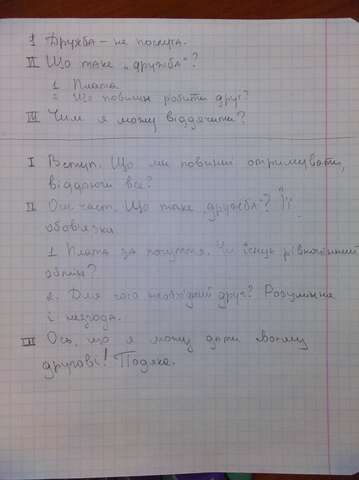 I Дружба – не послуга.
II Що таке „дружба"?
1 Плата
2 Що повинен робити друг?
III Чим я можу віддячити?
I Вступ. Що ми повинні отримувати,
віддаючи все?
II Осн. част. Що таке „дружба"? Її
обов'язки
1. Плата за почуття. Чи існує рівноцінний
обмін?
2. Для чого необхідний друг? Розуміння
і незгода.
III Ось, що я можу дати своєму
другові! Подяка.